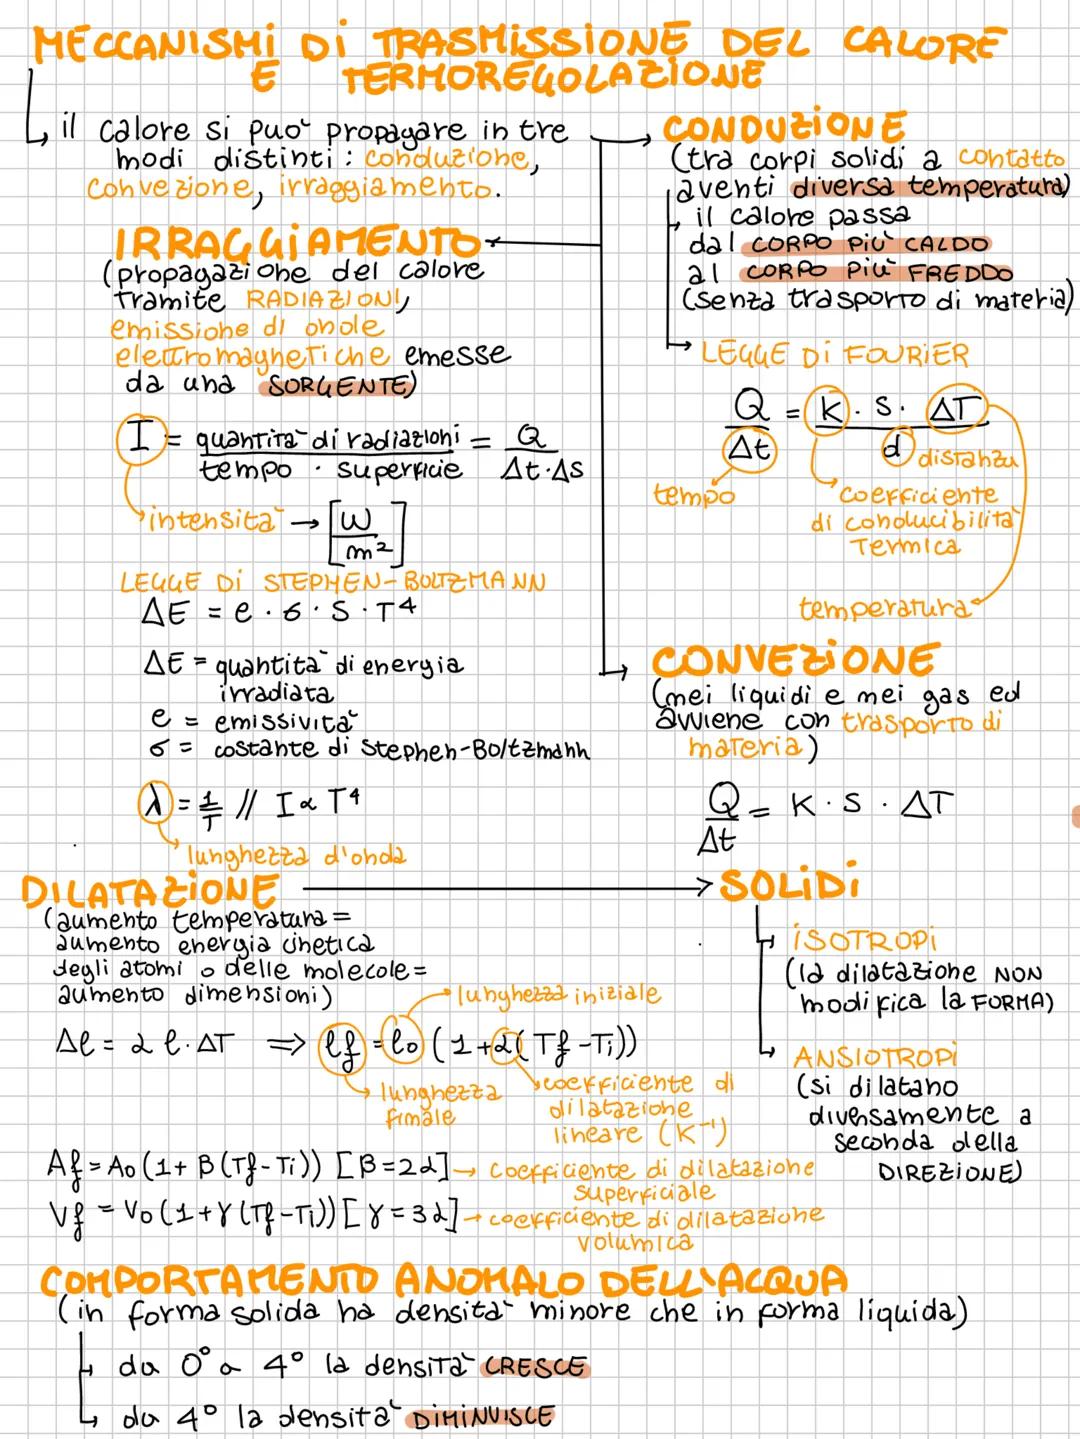 MECCANISMI DI TRASMISSIONE DEL CALORE
E TERMOREGOLAZIONE
il calore si può propagare in tre
modi distinti: conduzione,
convezione, irraggiamento.
IRRAGGIAMENTO
(propagazione del calore
tramite RADIAZIONI,
emissione di onde
elettromagnetiche emesse
da una SORGENTE)
I = quantità di radiazioni / tempo · superficie = Q / Δt·Δs
intensità → [W/m²]
LEGGE DI STEPHEN-BOLTZMANN
ΔE = e · σ · S · T⁴
ΔE = quantità di energia
irradiata
e = emissività
σ = costante di Stephen-Boltzmann
λ = 1/T // I ∝ T⁴
lunghezza d'onda
CONDUZIONE
(tra corpi solidi a contatto
aventi diversa temperatura)
il calore passa
dal CORPO PIÙ CALDO
al CORPO PIÙ FREDDO
(senza trasporto di materia)
LEGGE DI FOURIER
Q/Δt = K · S · ΔT / d
distanza
tempo
coefficiente
di conducibilità
termica
temperatura
CONVEZIONE
(nei liquidi e nei gas ed
avviene con trasporto di
materia)
Q/Δt = K · S · ΔT
DILATAZIONE
(aumento temperatura =
aumento energia cinetica
degli atomi o delle molecole =
aumento dimensioni)
Δl = α l · ΔT ⇒ lf = l₀ (1+α(Tf-Ti))
lunghezza iniziale
lunghezza
finale
coefficiente di
dilatazione
lineare (K⁻¹)
Af = A₀ (1+ β (Tf-Ti)) [β=2α] → coefficiente di dilatazione
superficiale
Vf = V₀ (1+γ (Tf-Ti)) [γ=3α] → coefficiente di dilatazione
volumica
SOLIDI
ISOTROPI
(la dilatazione NON
modifica la FORMA)
ANSIOTROPI
(si dilatano
diversamente a
seconda della
DIREZIONE)
COMPORTAMENTO ANOMALO DELL'ACQUA
(in forma solida ha densità minore che in forma liquida)
da 0° a 4° la densità CRESCE
da 4° la densità DIMINUISCE